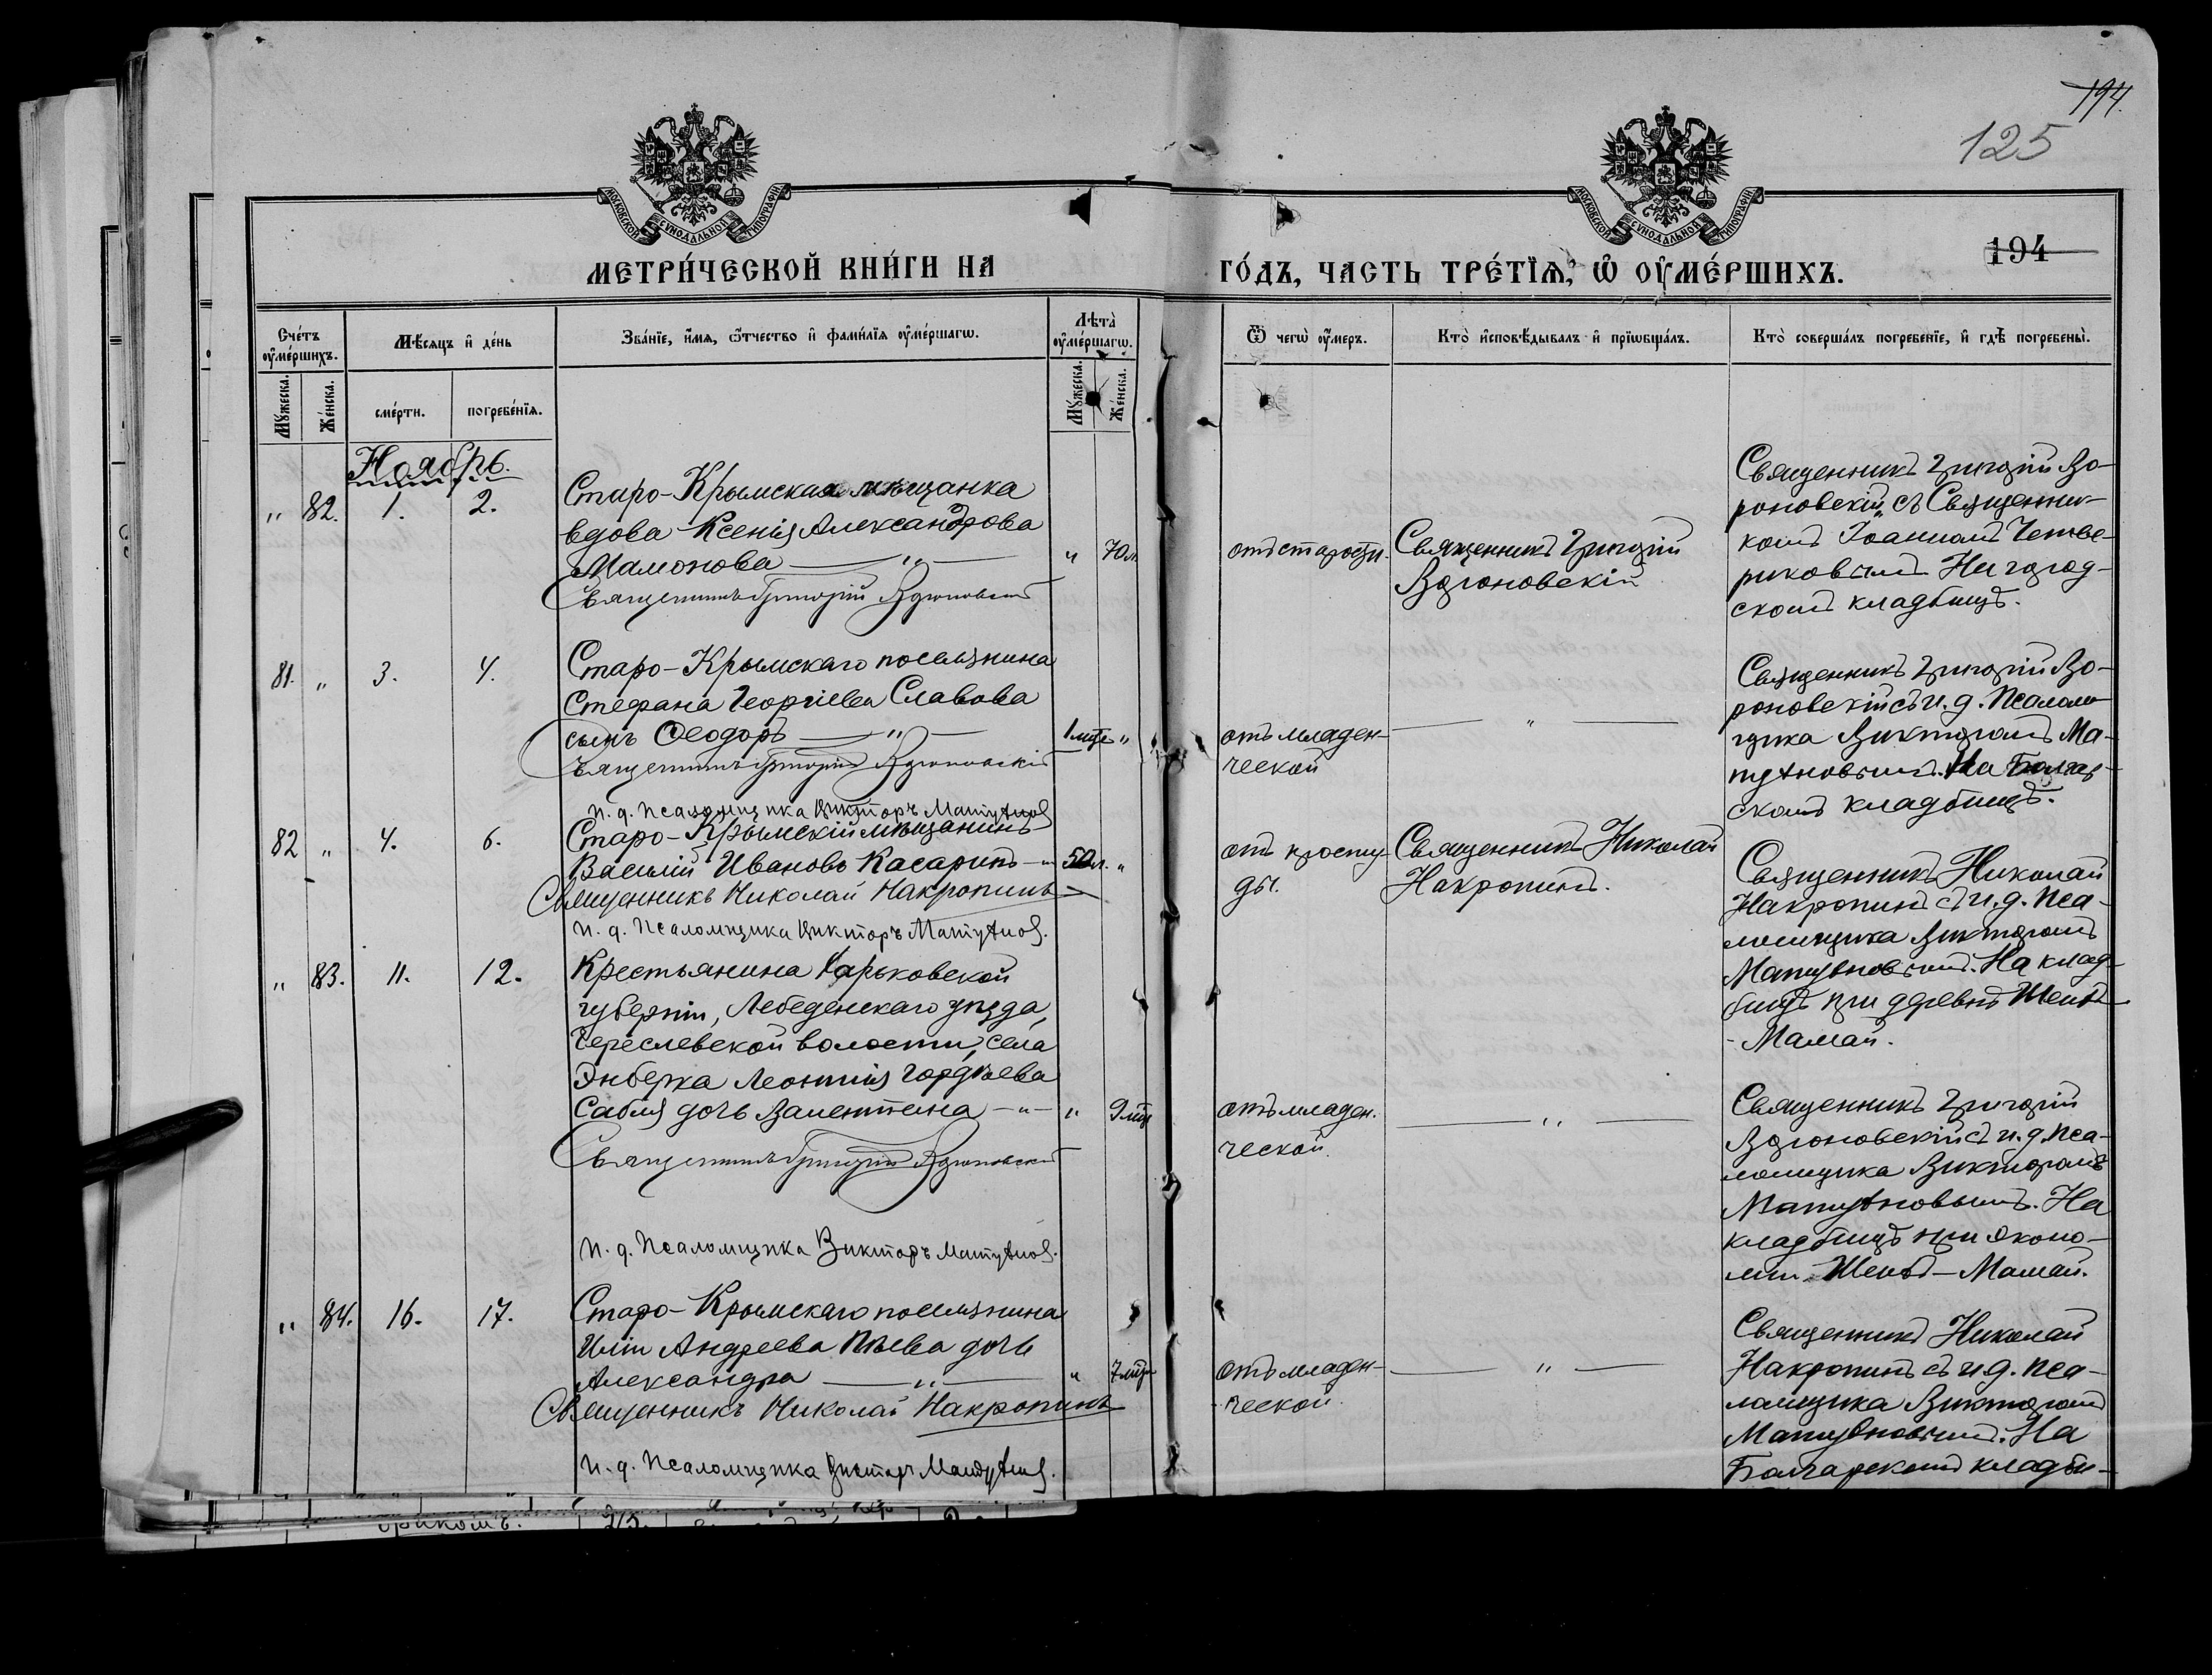 194.
125
МОСКОВСКОЙ СѴНОДАЛЬНОЙ ТИПОГРАФІИ
МОСКОВСКОЙ СѴНОДАЛЬНОЙ ТИПОГРАФІИ
МЕТРИ́ЧЕСКОЙ КНИ́ГИ НА ГО́ДЪ, ЧАСТЬ ТРЕ́ТЇѦ, Ѡ ОУМЕ́РШИХЪ.
194
Сче́тъ оуме́ршихъ.
Мѣ́сяцъ и де́нь
Зва́нїе, и́мя, ѻ҆́тчество и фами́лїя оуме́ршагѡ.
Лѣта̀ оуме́ршагѡ.
Ѿ чегѡ̀ оу́меръ.
Кто̀ исповѣ́дывалъ и прїѡбща́лъ.
Кто̀ соверша́лъ погребе́нїе, и гдѣ̀ погребены̀.
Му́жеска.
Же́нска.
сме́рти.
погребе́нїя.
Му́жеска.
Же́нска.
Ноябрь.
„ 82. 1. 2.
Старо-Крымская мѣщанка
вдова Ксенія Александрова
Мамонова — „ —
„ 70 л.
Священникъ Григорій Вороновскій
отъ старости.
Священникъ Григорій
Вороновскій
Священникъ Григорій Во-
роновскій, съ Священни-
комъ Іоанномъ Четве-
риковымъ На город-
скомъ кладбищѣ.
81. „ 3. 4.
Старо-Крымскаго поселянина
Стефана Георгіева Славова
сынъ Ѳеодоръ — „ —
1 мце „
Священникъ Григорій Вороновскій
и. д. псаломщика Викторъ Матуѣнов
отъ младен-
ческой
— „ —
Священникъ Григорій Во-
роновскій съ и. д. Псалом-
щика Викторомъ Ма-
туѣновымъ. На Болгар-
скомъ кладбищѣ.
82 „ 4. 6.
Старо-Крымскій мѣщанинъ
Василій Ивановъ Касаринъ — „
50 л. „
Священникъ Николай Накропинъ
и. д. Псаломщика Викторъ Матуѣнов.
отъ просту-
ды.
Священникъ Николай
Накропинъ.
Священникъ Николай
Накропинъ съ и. д. Пса-
ломщика Викторомъ
Матуѣновымъ. На клад-
бищѣ при деревнѣ Шейхъ
-Мамай.
„ 83. 11. 12.
Крестьянина Харьковской
губерніи, Лебединскаго уѣзда,
волости, села
Леонтія Гордѣева
Сабля дочь Валентина — „ —
„ 9 мце
Священникъ Григорій Вороновскій
и. д. Псаломщика Викторъ Матуѣнов.
отъ младен.
ческой.
— „ —
Священникъ Григорій
Вороновскій съ и. д. Пса-
ломщика Викторомъ
Матуѣновымъ. На
кладбищѣ при эконо-
міи Шейхъ-Мамай.
„ 84. 16. 17.
Старо-Крымскаго поселянина
Иліи Андреева Пѣева дочь
Александра — „ —
„ 7 мце
Священникъ Николай Накропинъ
и. д. Псаломщика Викторъ Матуѣнов.
отъ младен-
ческой.
— „ —
Священникъ Николай
Накропинъ съ и. д. Пса-
ломщика Викторомъ
Матуѣновымъ. На
Болгарскомъ кладби-